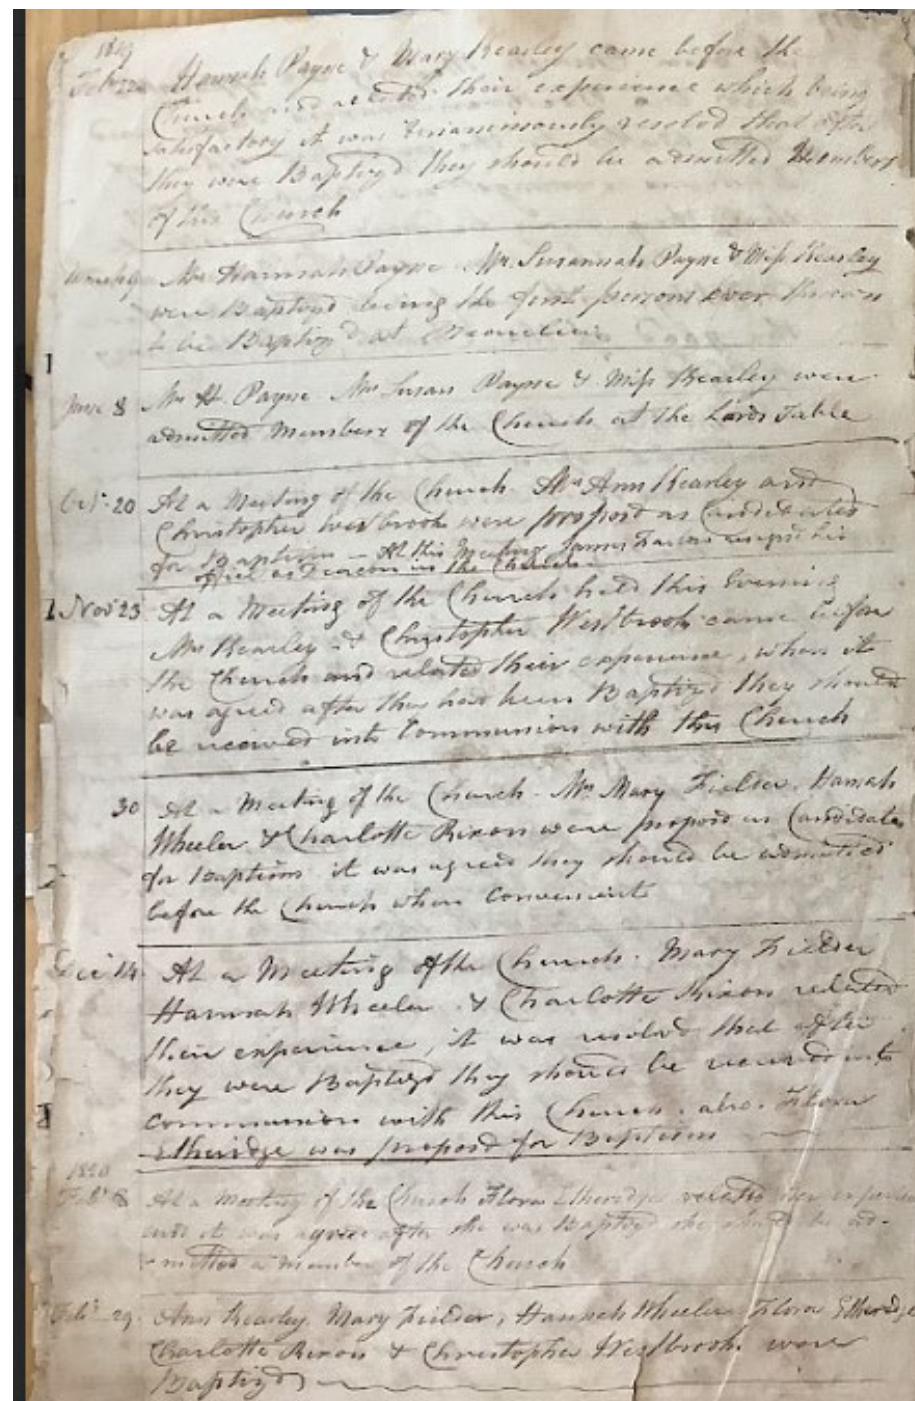 1819
Feb 22 Hannah Payne & Mary Kearley came before the
Church and related their experience which being
satisfactory it was Unanimously resolvd that after
they were Baptizd they should be admitted Members
of this Church
Mrs Hannah Payne Mrs Susannah Payne & Miss Kearley
were Baptizd being the first persons ever known
to be Baptizd at Beaulieu
June 8 Mrs H. Payne Mrs Susan Payne & Miss Kearley were
admitted Members of the Church at the Lords Table
Oct. 20 At a Meeting of the Church Mrs Ann Kearley and
Christopher Westbrook were proposd as Candidates
for Baptism – At this Meeting James resignd his
office as Deacon in the Church
Nov 23 At a Meeting of the Church held this Evening
Mrs Kearley & Christopher Westbrook came before
the Church and related their experience, when it
was agreed after they had been Baptizd they should
be received into Communion with this Church
30 At a Meeting of the Church - Mrs Mary Fielder, Hannah
Wheeler & Charlotte Rixon were proposd as Candidates
for Baptism it was agreed they should be admitted
before the Church when Convenient
Dec 14 At a Meeting of the Church. Mary Fielder
Hannah Wheeler & Charlotte Rixon related
their experience, it was resolvd that after
they were Baptizd they should be received into
communion with this Church. also. Flora
Etheridge was proposd for Baptism
1820
Feb 8 At a Meeting of the Church Flora Etheridge related her experience
and it was agreed after she was Baptizd she should be ad-
-mitted a member of the Church
Feb. 29. Ann Kearley, Mary Fielder, Hannah Wheeler Flora Etheridge
Charlotte Rixon & Christopher Westbrook were
Baptizd